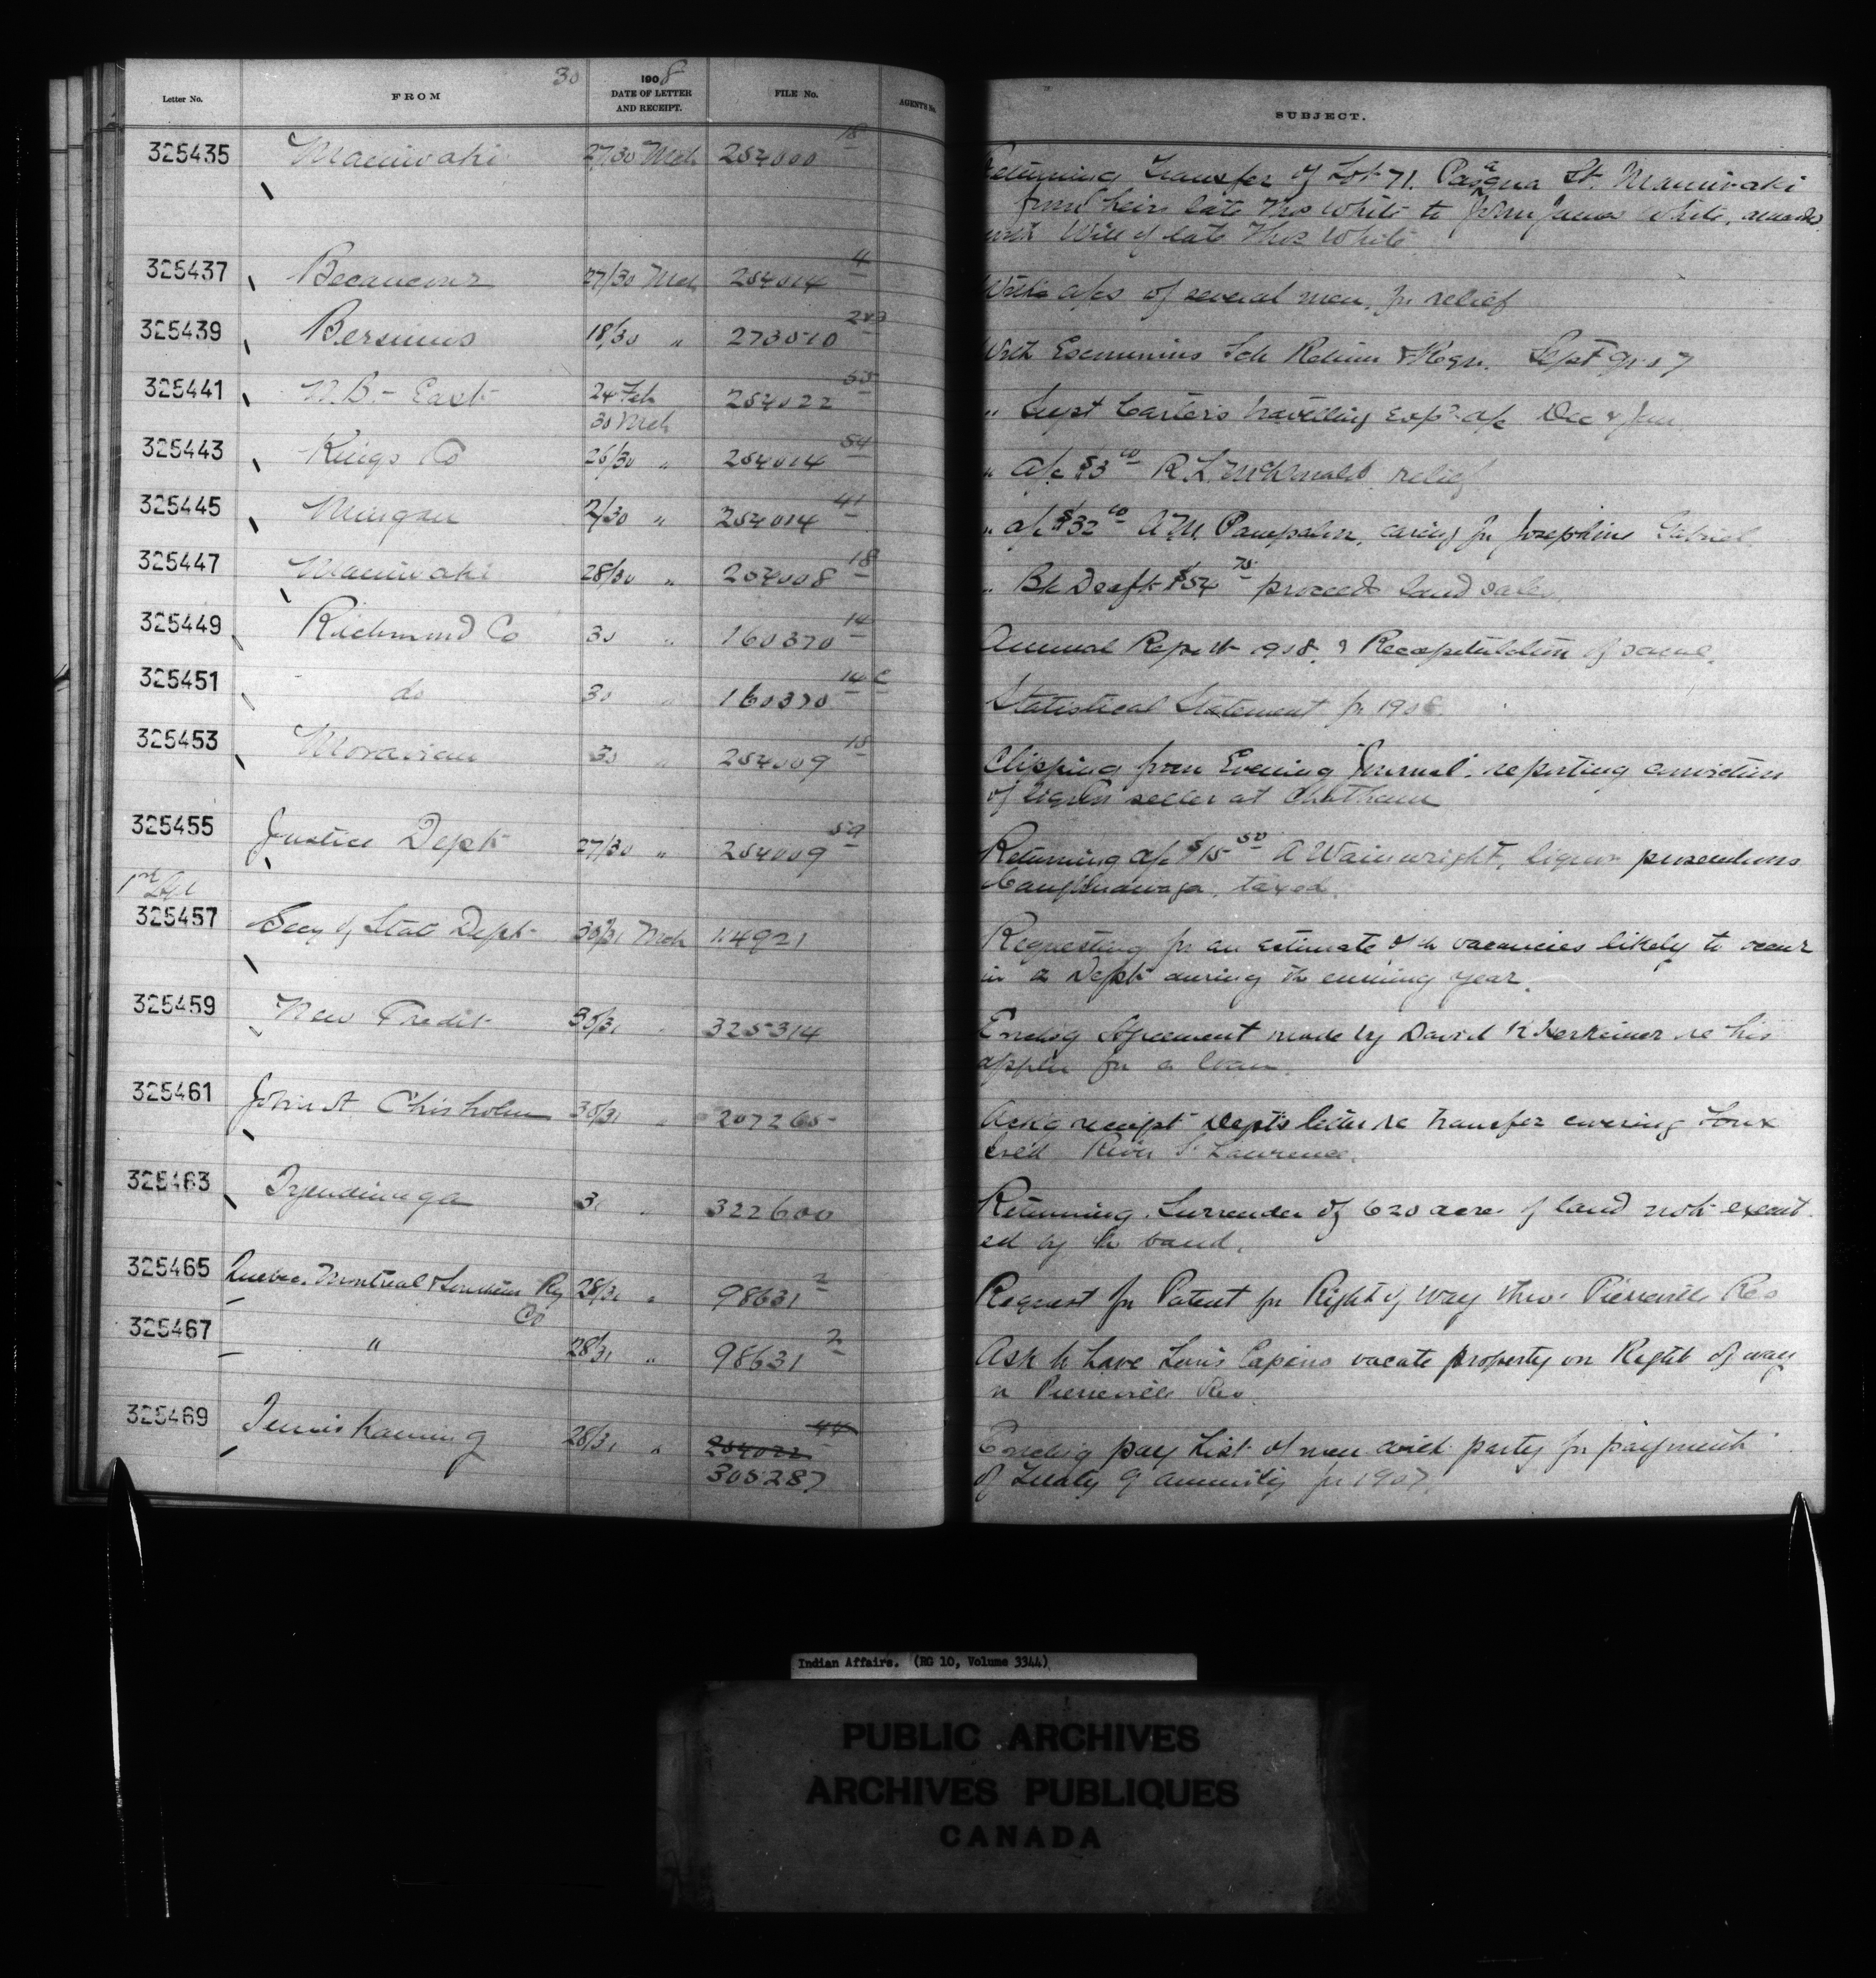 30
1908
Letter No. FROM DATE OF LETTER AND RECEIPT. FILE No. AGENT'S No. SUBJECT.
325435 Maniwaki 27/30 Mch 254000 18 Returning Transfer of Lot 71. Pasqua St. Maniwaki
from heirs late Thos White to John James White,
with Will of late Thos White
325437 Becancour 27/30 Mch 254014 4 With a/cs of several men, for relief
325439 Bersimis 18/30 " 273510 With Escoumins Sch Return & Regr. Sept 9
325441 N.B. - East 24 Feb 254022 " Supt Carter's travelling exps a/c Dec & Jan.
30 Mch
325443 Kings Co 26/30 " 254014 54 " a/c $3 00 R. L. McDonald relief
325445 Mingan 2/30 " 254014 41 " a/c $32 00 A. M. Pampalon, caring for Josephine Gabriel
325447 Maniwaki 28/30 " 254008 18 " Bk Draft $54 75 proceeds land sales.
325449 Richmond Co 30 " 160370 14 Annual Report 908. & Recapitulation of same.
325451 do 30 " 160370 14 c Statistical Statement for 1908.
325453 Moravian 30 " 254009 Clipping from Evening Journal. reporting conviction
of liquor seller at Chatham
325455 Justice Dept 27/30 " 254009 59 Returning a/c $15 50 A Wainwright, liquor prosecutions
Caughnawaga. taxed.
325457 Secy of State Dept 30/31 Mch 114921 Requesting for an estimate of the vacancies likely to occur
in Dept during the ensuing year.
325459 New Credit 30/31 " 325314 Enclosg Agreement made by David Herkimer re his
appln for a loan.
325461 John A. Chisholm 30/31 " 207265 Ackg receipt Dept's letter re transfer covering
River St Lawrence.
325463 Tyendinaga 31 " 322600 Returning Surrender of 620 acres of land not execut
ed by the band.
325465 Quebec, Montreal & Southern Ry 28/31 " 98631 2 Request for Patent for Right of Way thro' Pierreville Res
Co
325467 " 28/31 " 98631 2 Ask to have Louis Capino vacate property on Right of way
in Pierreville Res
325469 Temiskaming 28/31 " 254022 44 Enclosg pay List of men with party for payment
305287 of Treaty 9 annuity for 1907.
Indian Affairs. (RG 10, Volume 3344)
PUBLIC ARCHIVES
ARCHIVES PUBLIQUES
CANADA